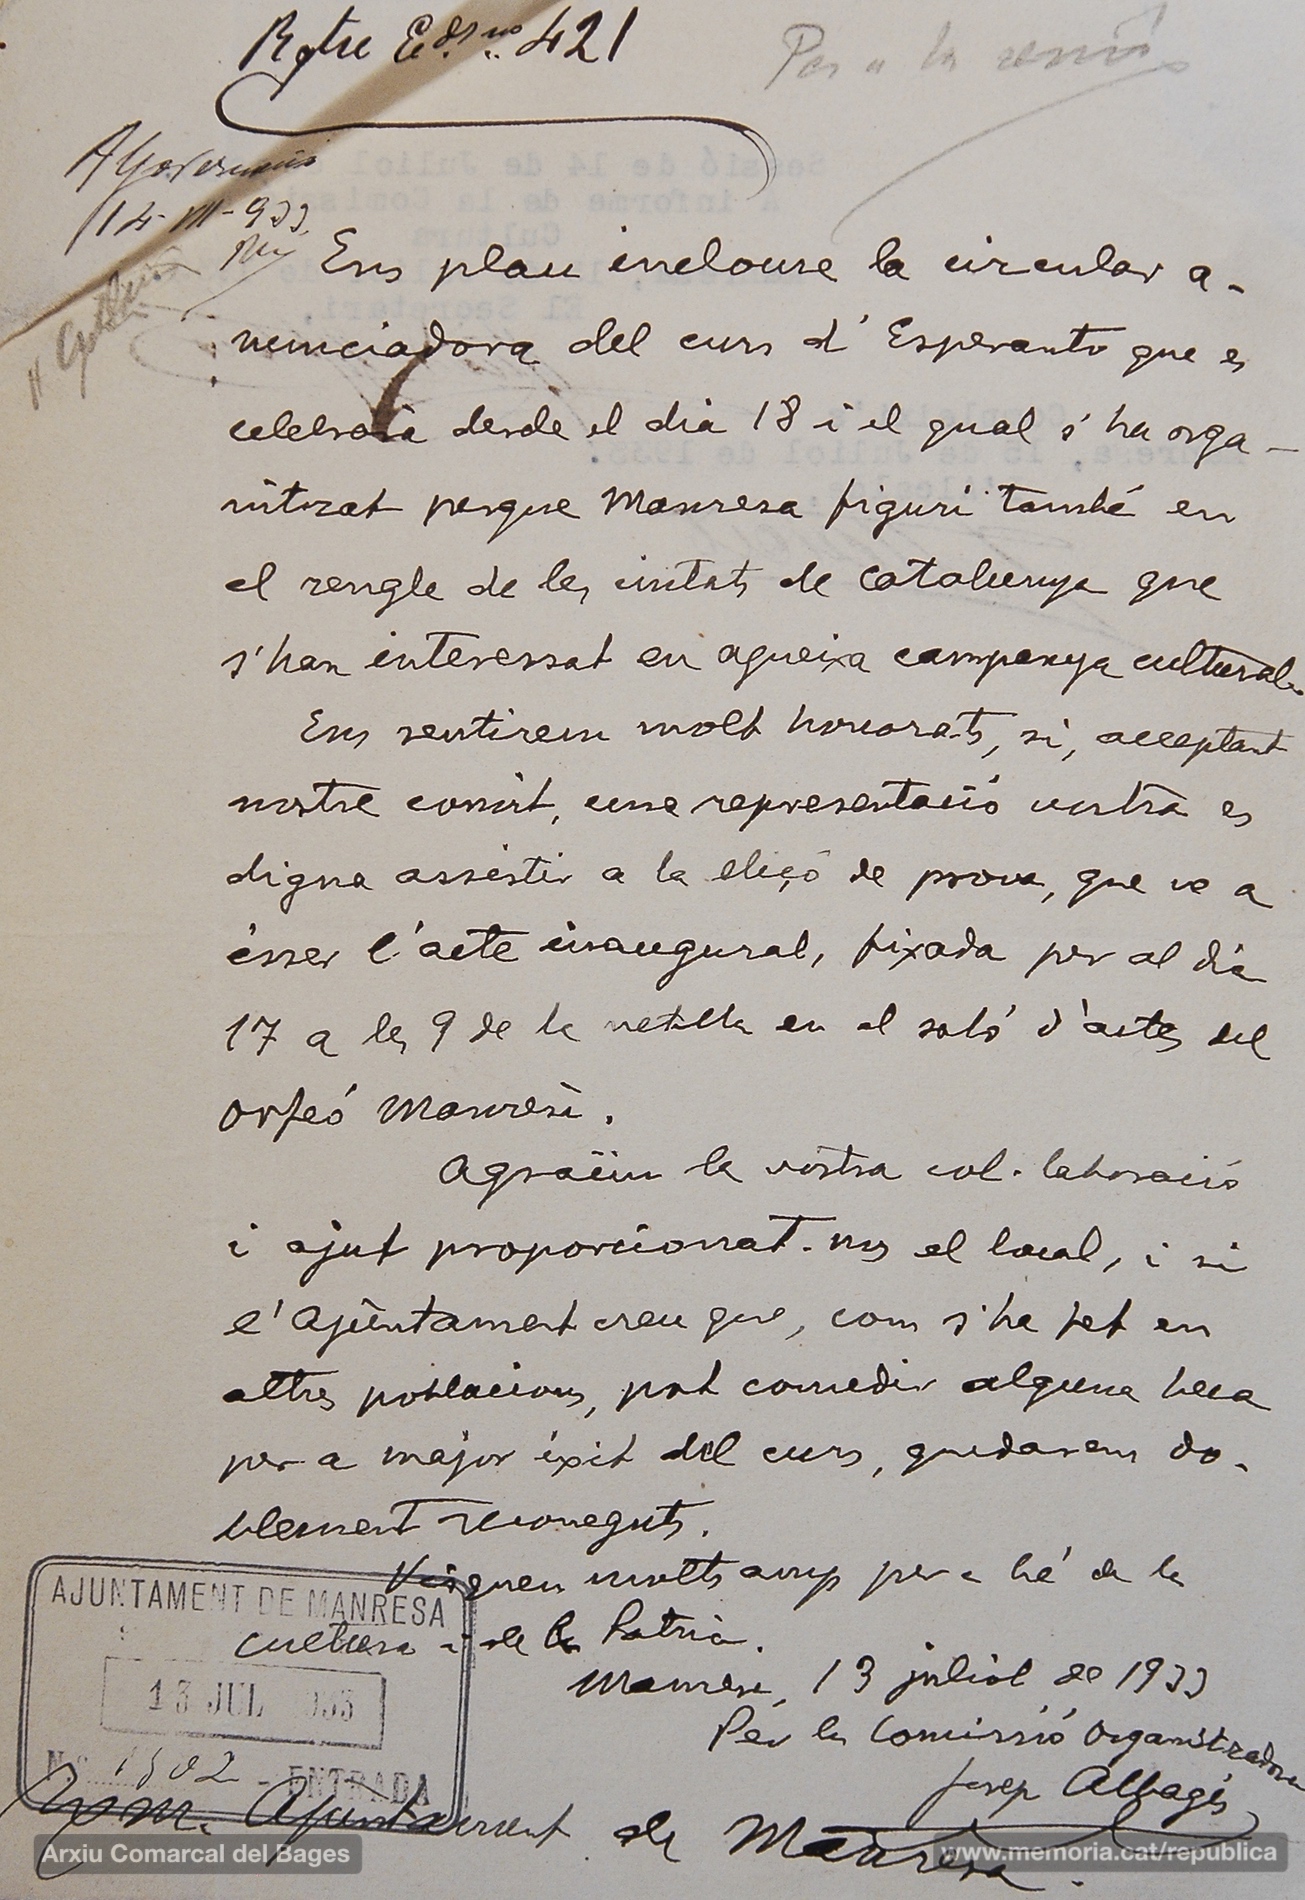 Rgtre Eds nº 421
Per a la sessió
A Governació
14-VII-933
A Cultura
Ens plau incloure la circular a-
nunciadora del curs d' Esperanto que es
celebrarà desde el dia 18 i el qual s'ha orga-
nitzat perque Manresa figuri també en
el rengle de les ciutats de Catalunya que
s'han interessat en aqueixa campanya cultural.
Ens sentirem molt honorats, si, acceptant
nostre convit, una representació vostra es
digna assistir a la lliçó de prova, que ve a
ésser l'acte inaugural, fixada per al dia
17 a les 9 de la vetlla en el saló d'actes del
Orfeó Manresà.
Agraïm la vostra col·laboració
i ajut proporcionat-nos el local, i si
l'Ajuntament creu que, com s'ha fet en
altres poblacions, pot concedir alguna beca
per a major èxit del curs, quedarem do-
blement reconeguts.
Visqueu molts anys per a bé de la
cultura i de la Patria.
Manresa, 13 juliol de 1933
Per la Comissió Organitzadora
Josep Albagés
AJUNTAMENT DE MANRESA
13 JUL 1933
N.º 1502 - ENTRADA
Ajuntament de Manresa.
Arxiu Comarcal del Bages
www.memoria.cat/republica